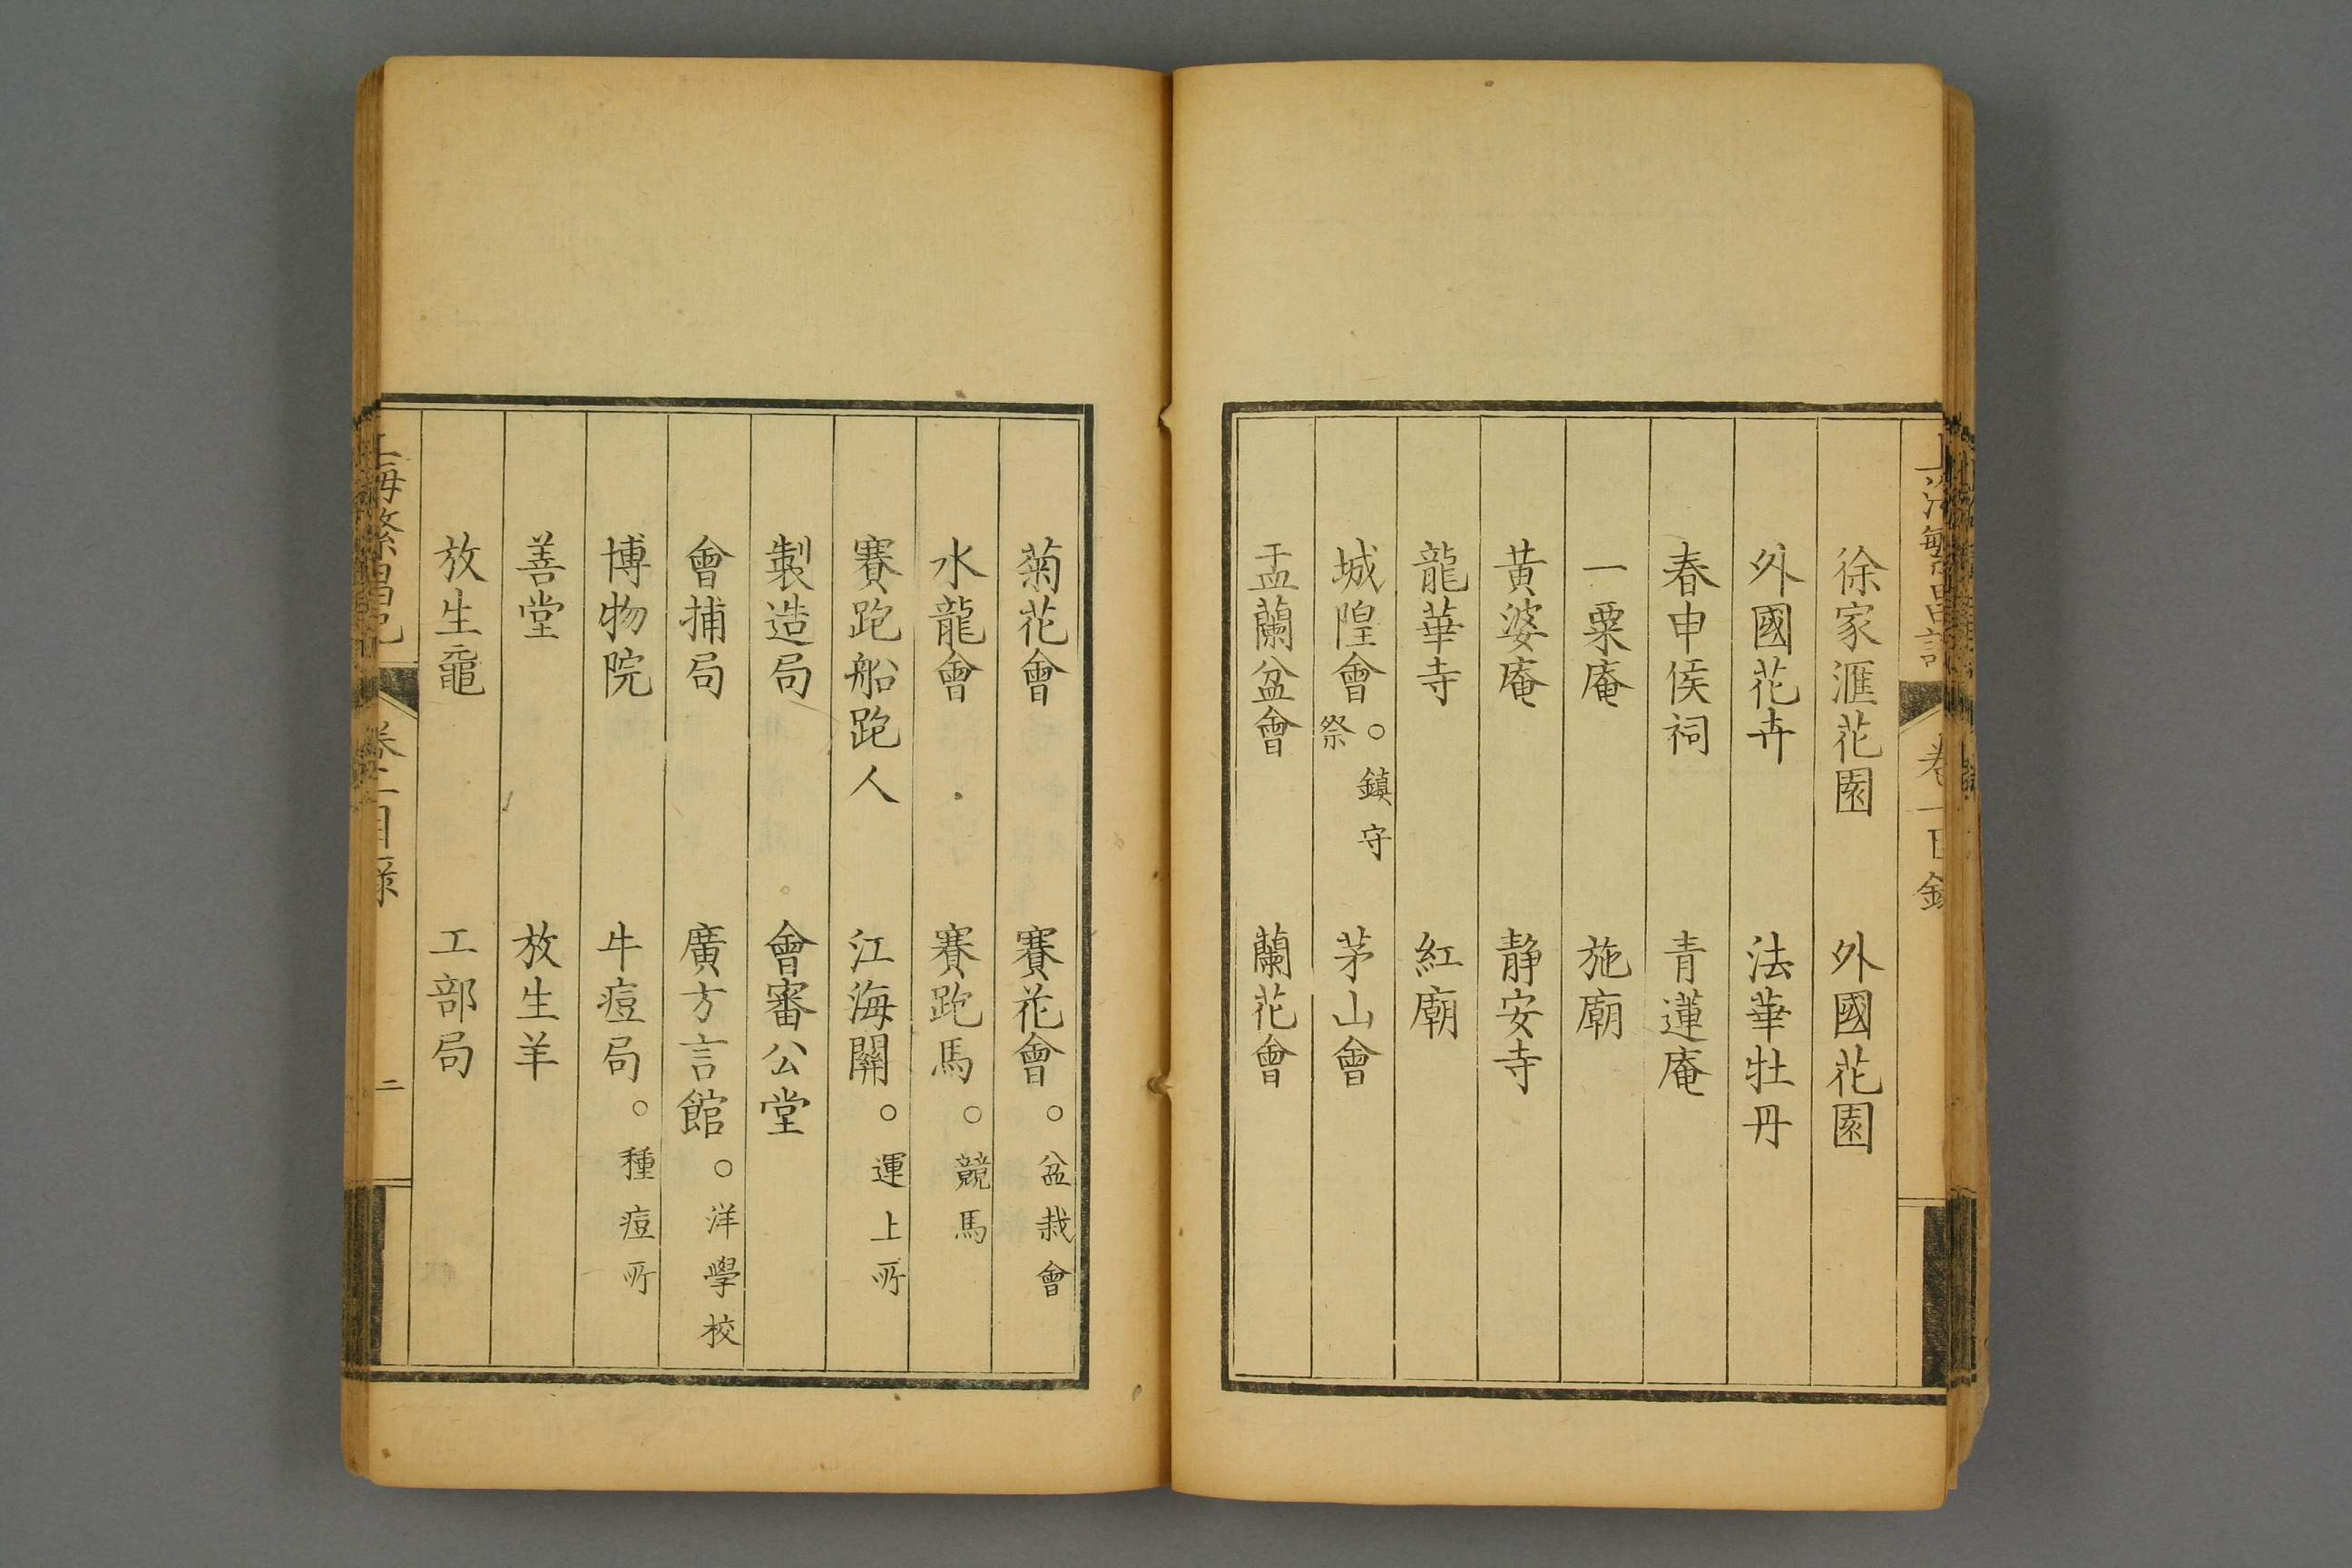 上海繁昌記 卷一目錄
徐家滙花園 外國花園
外國花卉 法華牡丹
春申侯祠 青蓮庵
一粟庵 施廟
黃婆庵 静安寺
龍華寺 紅廟
城隍會。鎮守祭 茅山會
盂蘭盆會 蘭花會
菊花會 賽花會。盆栽會
水龍會 賽跑馬。競馬
賽跑船跑人 江海關。運上所
製造局 會審公堂
會捕局 廣方言館。洋學校
博物院 牛痘局。種痘所
善堂 放生羊
放生黿 工部局
上海繁昌記 卷一目錄 二